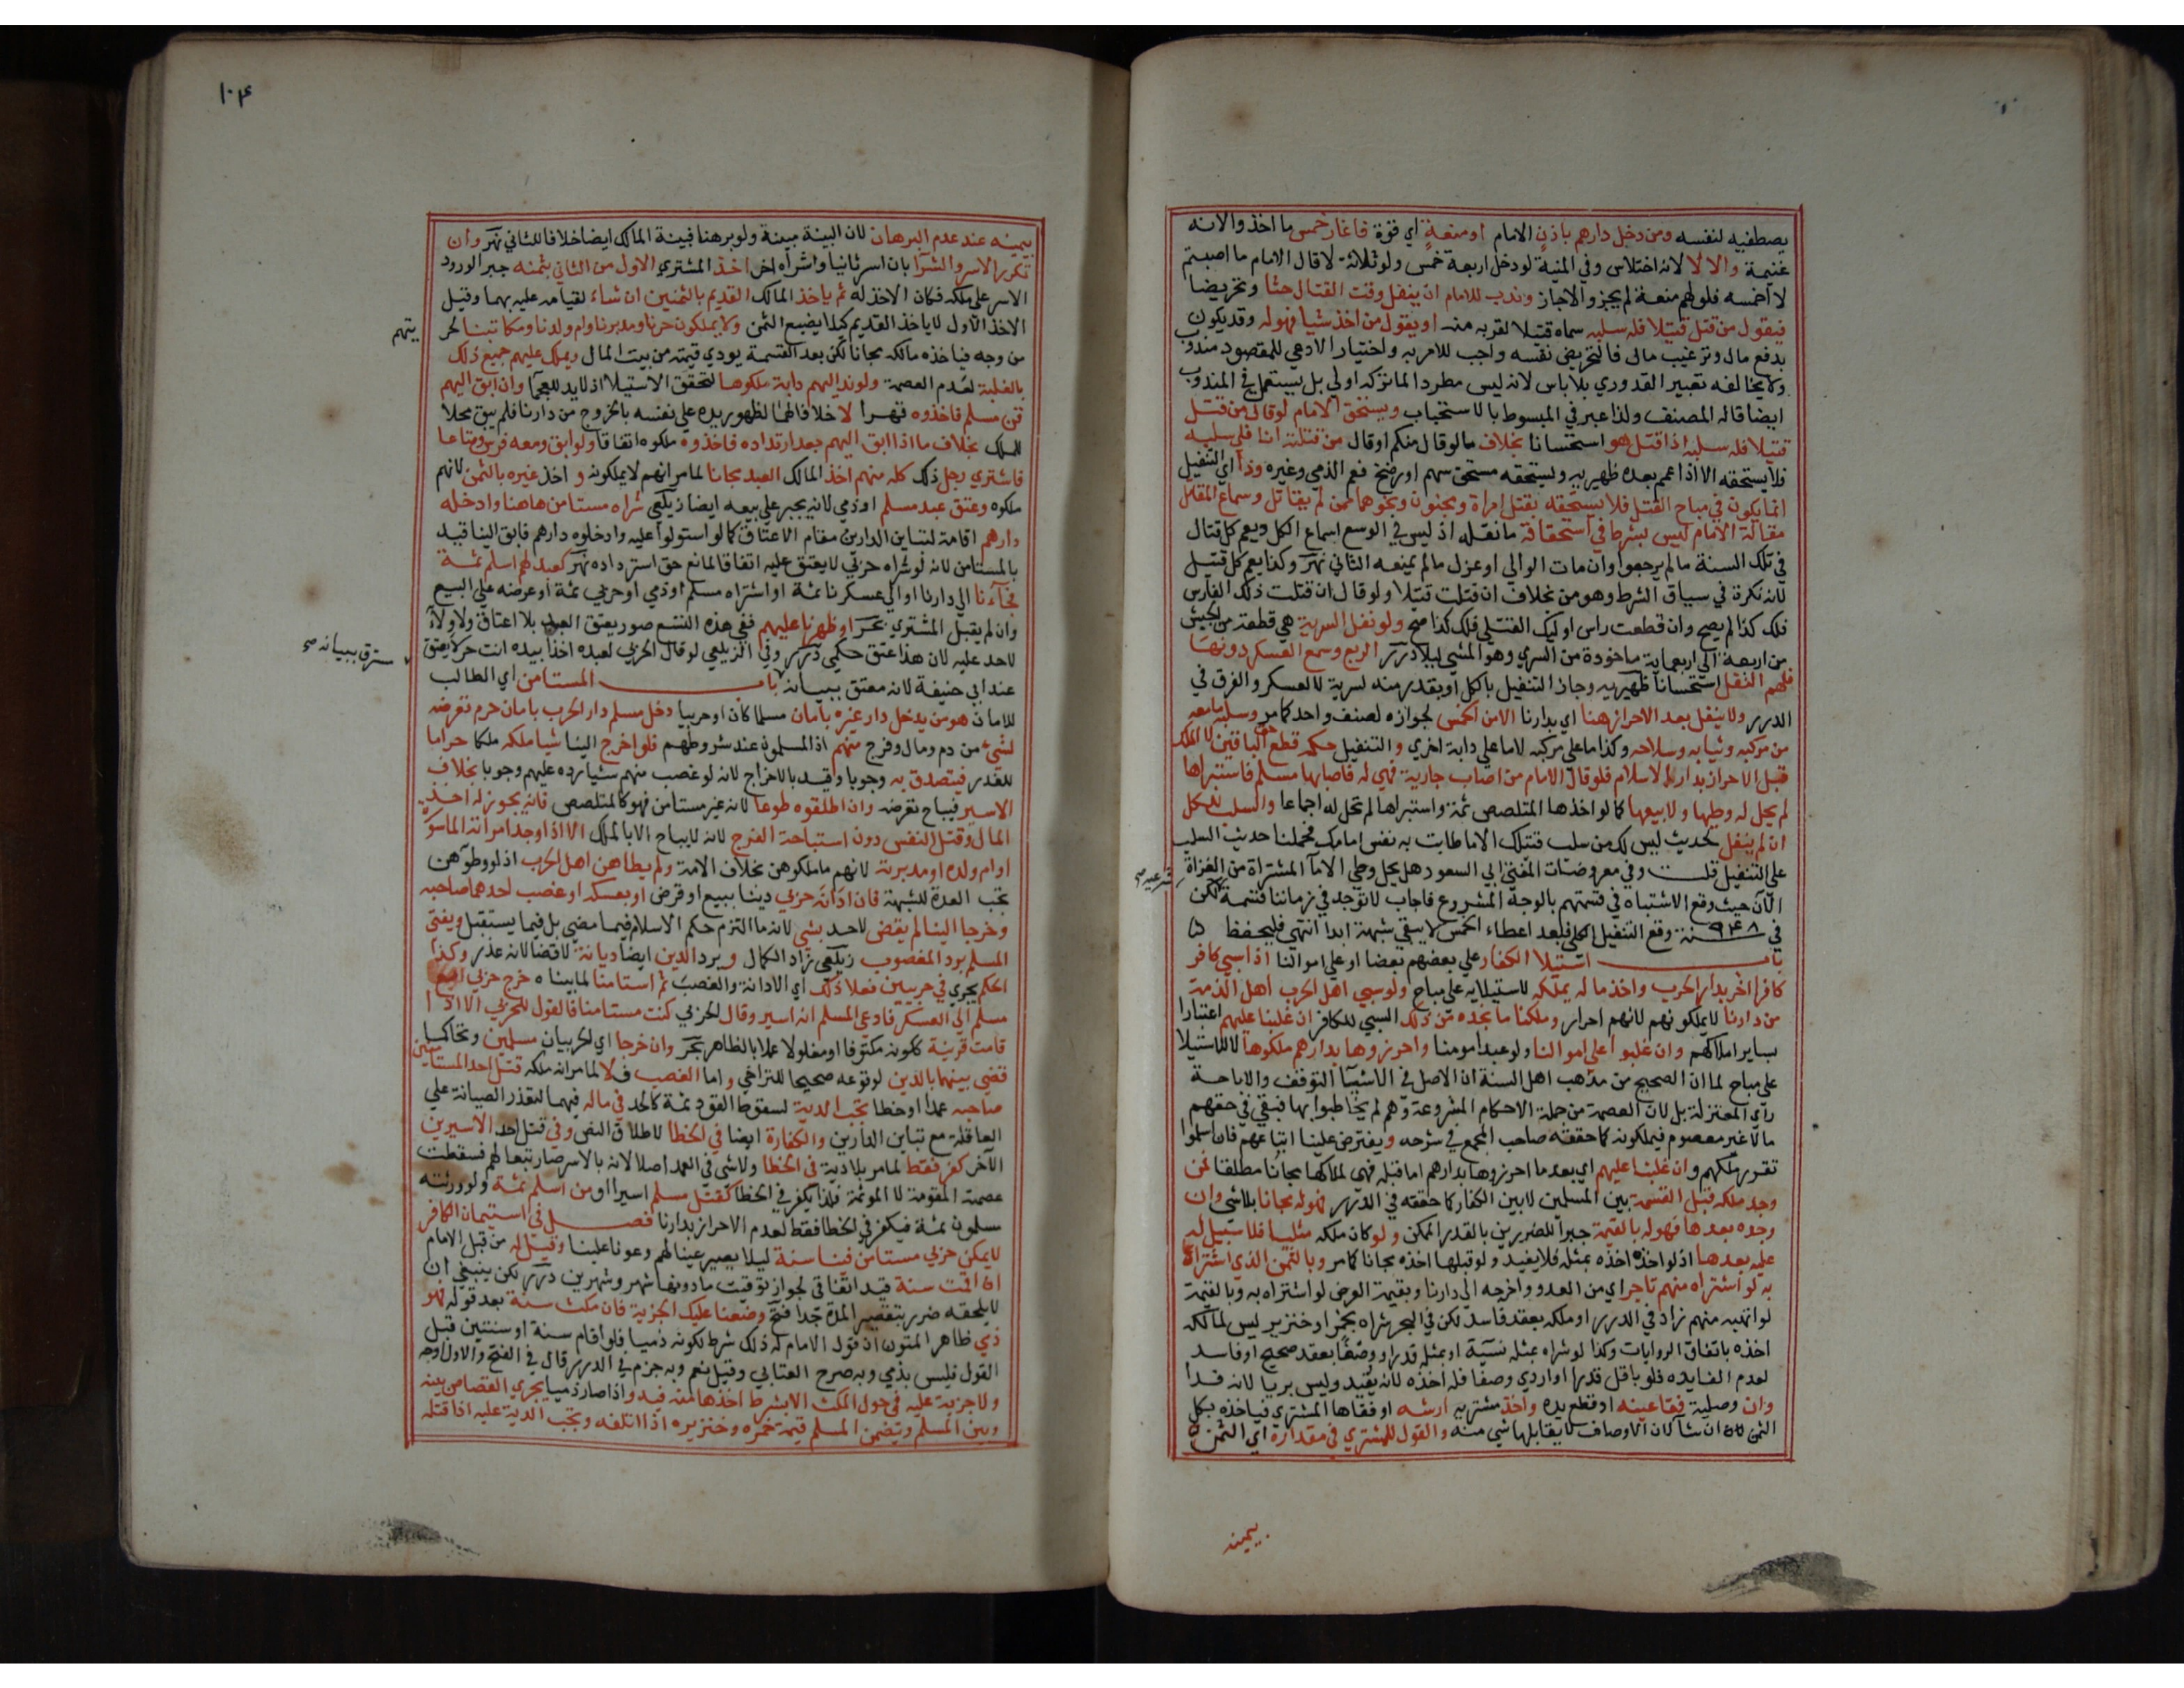 يصطفيه لنفسه ومن دخل دارهم باذن الامام او منعة اي قوة فاغار خمس ما اخذوا لانه
غنيمة والا لا لانه اختلاس وفي المنية لو دخل اربعة خمس ولو ثلاثة لا قال الامام ما اصبتم
لا اخمسه فلو لهم منعة لم يجز والا جاز وندب للامام ان ينفل وقت القتال حثا وتحريضا
فيقول من قتل قتيلا فله سلبه سماه قتيلا لقربه منه او يقول من اخذ شيا فهو له وقد يكون
بدفع مال وترغيب مال فالتحريض نفسه واجب للامر به واختيار الادعي للمقصود مندوب
ولا يخالفه تعبير القدوري بلا باس لانه ليس مطردا لما تركه اولي بل يستعمل في المندوب
ايضا قاله المصنف ولذا عبر في المبسوط بالاستحباب ويستحق الامام لو قال من قتل
قتيلا فله سلبه اذا قتل هو استحسانا بخلاف ما لو قال منكم او قال من قتلته انا فلي سلبه
فلا يستحقه الا اذا عمم بعده ظهيريه ويستحقه مستحق سهم او رضخ فعم الذمي وغيره وذا اي التنفيل
انما يكون في مباح القتل فلا يستحقه بقتل امراة ومجنون ونحوهما ممن لم يقاتل وسماع القاتل
مقالة الامام ليس بشرط في استحقاقه ما نفله اذ ليس في الوسع اسماع الكل ويعم كل قتال
في تلك السنة ما لم يرجعوا وان مات الوالي او عزل ما لم يمنعه الثاني نهر وكذا يعم كل قتيل
لانه نكرة في سياق الشرط وهو من بخلاف ان قتلت قتيلا ولو قال ان قتلت ذلك الفارس
فلك كذا لم يصح وان قطعت راس اوليك القتلي فلك كذا صح ولو نفل السرية هي قطعة من الجيش
من اربعة الي اربعماية ماخوذة من السري وهو المشي ليلا درر الربع وسمع العسكر دونها
فلهم النفل استحسانا ظهيريه وجاز التنفيل بالكل او بقدر منه لسرية لا لعسكر والفرق في
الدرر ولا ينفل بعد الاحراز هنا اي بدارنا الا من الخمس لجوازه لصنف واحد كما مر وسلبه ما معه
من مركبه وثيابه وسلاحه وكذا ما علي مركبه لا ما علي دابة اخري والتنفيل حكمه قطع حق الباقين لا الملك
قبل الاحراز بدار الاسلام فلو قال الامام من اصاب جارية فهي له فاصابها مسلم فاستبراها
لم يحل له وطيها ولا بيعها كما لو اخذها المتلصص ثمة واستبراها لم تحل له اجماعا والسلب للكل
ان لم ينفل لحديث ليس لك من سلب قتيلك الا ما طابت به نفس امامك فحملنا حديث السلب
علي التنفيل قلت وفي معروضات المفتي ابي السعود هل يحل وطي الاما المشتراة من الغزاة
شرعيه صح
الآن حيث وقع الاشتباه في قسمتهم بالوجه المشروع فاجاب لا توجد في زماننا قسمة لكن
في ٩٤٨ سنة وقع التنفيل الكلي فبعد اعطاء الخمس لا يبقي شبهة ابدا انتهي فليحفظ
باب استيلا الكفار علي بعضهم بعضا او علي اموالنا اذا سبي كافر
كافرا اخر بدار الحرب واخذ ماله يملكه لاستيلايه علي مباح ولو سبي اهل الحرب اهل الذمة
من دارنا لا يملكونهم لانهم احرار وملكنا ما نجده من ذلك السبي للكافر ان غلبنا عليهم اعتبارا
بساير املاكهم وان غلبوا علي اموالنا ولو عبدا مومنا واحرزوها بدارهم ملكوها لا للاستيلا
علي مباح لما ان الصحيح من مذهب اهل السنة ان الاصل في الاشيآ التوقف والاباحة
راي المعتزلة بل لان العصمة من جملة الاحكام المشروعة وهم لم يخاطبوا بها فبقي في حقهم
مالا غير معصوم فيملكونه كما حققه صاحب المجمع في شرحه ويفترض علينا اتباعهم فان اسلموا
تقرر ملكهم وان غلبنا عليهم اي بعدما احرزوها بدارهم اما قبله فهي لملاكها مجانا مطلقا فمن
وجد ملكه قبل القسمة بين المسلمين لا بين الكفار كما حققه في الدرر فهو له مجانا بلا شي وان
وجده بعدها فهو له بالقيمة جبرا للضررين بالقدر الممكن ولو كان ملكه مثليا فلا سبيل له
عليه بعدها اذ لو اخذه اخذه بمثله فلا يفيد ولو قبلها اخذه مجانا كما مر وبالثمن الذي اشتراه
به لو اشتراه منهم تاجر اي من العدو واخرجه الي دارنا وبقيمة العرض لو اشتراه به وبالقيمة
لو اتهبه منهم زاد في الدرر او ملكه بعقد فاسد لكن في البحر شراه بخمر او خنزير ليس لمالكه
اخذه باتفاق الروايات وكذا لو شراه بمثله نسيّة او بمثله قدرا ووصفا بعقد صحيح او فاسد
لعدم الفايده فلو باقل قدرا او اردي وصفا فله اخذه لانه يفيد وليس بربا لانه فدا
وان وصلية فقا عينه او قطع يده واخذ مشتريه ارشه او فقاها المشتري فياخذه بكل
الثمن ان شا لان الاوصاف لا يقابلها شي منه والقول للمشتري في مقداره اي الثمن
بيمينه
١٠٤
بيمينه عند عدم البرهان لان البينة مبينة ولو برهنا فبينة المالك ايضا خلافا للثاني نهر وان
تكرر الاسر والشرآ بان اسر ثانيا واشراه اخر اخذ المشتري الاول من الثاني بثمنه جبرا لورود
الاسر علي ملكه فكان الاخذ له ثم ياخذ المالك القديم بالثمنين ان شاء لقيامه عليه بهما وقبل
الاخذ الاول لا ياخذ القديم كيلا يضيع الثمن ولا يملكون حرنا ومدبرنا وام ولدنا ومكاتبنا لحر
يتهم
من وجه فياخذه مالكه مجانا لكن بعد القسمة يودي قيمته من بيت المال ويملك عليهم جميع ذلك
بالغلبة لعدم العصمة ولو ند اليهم دابة ملكوها لتحقق الاستيلا اذ لا يد للعجمآ وان ابق اليهم
قن مسلم فاخذوه قهرا لا خلافا لهما لظهور يده علي نفسه بالخروج من دارنا فلم يبق محلا
للملك بخلاف ما اذا ابق اليهم بعد ارتداده فاخذوه ملكوه اتفاقا ولو ابق ومعه فرس ومتاعا
فاشتري رجل ذلك كله منهم اخذ المالك العبد مجانا لما مر انهم لا يملكونه واخذ غيره بالثمن لانهم
ملكوه وعتق عبد مسلم او ذمي لانه يجبر علي بيعه ايضا زيلعي شراه مستامن هاهنا وادخله
دارهم اقامة لتباين الدارين مقام الاعتاق كما لو استولوا عليه وادخلوه دارهم فابق الينا قيد
بالمستامن لانه لو شراه حربي لا يعتق عليه اتفاقا لمانع حق استرداده نهر كعبد لهم اسلم ثمة
فجآءنا الي دارنا او الي عسكرنا ثمة او اشتراه مسلم او ذمي او حربي ثمة او عرضه علي البيع
وان لم يقبل المشتري بحر او ظهرنا عليهم ففي هذه التسع صور يعتق العبد بلا اعتاق ولا ولآء
لاحد عليه لان هذا عتق حكمي درر وفي الزيلعي لو قال الحربي لعبده اخذا بيده انت حر لا يعتق
عند ابي حنيفة لانه معتق ببيانه باب المستامن اي الطالب
مسترق ببنانه صح
للامان هو من يدخل دار غيره بامان مسلما كان او حربيا دخل مسلم دار الحرب بامان حرم تعرضه
لشئ من دم ومال وفرج منهم اذ المسلمون عند شروطهم فلو اخرج الينا شيا ملكه ملكا حراما
للغدر فيتصدق به وجوبا وقيد بالاخراج لانه لو غصب منهم شيا رده عليهم وجوبا بخلاف
الاسير فيباح تعرضه وان اطلقوه طوعا لانه غير مستامن فهو كالمتلصص فانه يجوز له اخذ
المال وقتل النفس دون استباحة الفرج لانه لا يباح الا بالملك الا اذا وجد امراته الماسورة
او ام ولده او مدبرته لانهم ما ملكوهن بخلاف الامة ولم يطاهن اهل الحرب اذ لو وطوهن
تجب العدة للشبهة فان ادَانَه حربي دينا ببيع او قرض او بعكسه او غصب احدهما صاحبه
وخرجا الينا لم يقض لاحد بشي لانه ما التزم حكم الاسلام فيما مضي بل فيما يستقبل ويفتي
المسلم برد المغصوب زيلعي زاد الكمال وبرد الدين ايضا ديانة لا قضا لانه عذر وكذا
الحكم يجري في حربيين فعلا ذلك اي الادانة والغصب ثم استامنا لما بيناه خرج حربي مع
مسلم الي العسكر فادعي المسلم انه اسير وقال الحربي كنت مستامنا فالقول للحربي الا اذا
قامت قرينة ككونه مكتوفا او مغلولا عملا بالظاهر بحر وان خرجا اي الحربيان مسلمين وتحاكما
قضي بينهما بالدين لوقوعه صحيحا للتراضي واما الغصب فلا لما مر انه ملكه قتل احد المستامنين
صاحبه عمدا او خطا تجب الدية لسقوط القود ثمة كالحد في ماله فيهما لتعذر الصيانة علي
العاقلة مع تباين الدارين والكفارة ايضا في الخطا لاطلاق النص وفي قتل احد الاسيرين
الآخر كفر فقط لما مر بلا دية في الخطا ولا شي في العمد اصلا لانه بالاسر صار تبعا لهم فسقطت
عصمته المقومة لا الموثمة فلذا يكفر في الخطا كقتل مسلم اسيرا او من اسلم ثمة ولو ورثته
مسلمون ثمة فيكفر في الخطا فقط لعدم الاحراز بدارنا فصل في استيمان الكافر
لا يمكن حربي مستامن فينا سنة ليلا يصير عينا لهم وعونا علينا وقيل له من قبل الامام
ان اقمت سنة قيد اتفاقي لجواز توقيت ما دونها شهر وشهرين درر لكن ينبغي ان
لا يلحقه ضرر بتقصير المدة جدا فتح وضعنا عليك الجزية فان مكث سنة بعد قوله فهو
ذمي ظاهر المتون ان قول الامام له ذلك شرط لكونه ذميا فلو اقام سنة او سنتين قبل
القول فليس بذمي وبه صرح العتابي وقيل نعم وبه جزم في الدرر قال في الفتح والاول اوجه
ولا جزية عليه في حول المكث الا بشرط اخذها منه فيه واذا صار ذميا يجري القصاص بينه
وبين المسلم ويضمن المسلم قيمة خمره وخنزيره اذا اتلفه وتجب الدية عليه اذا قتله